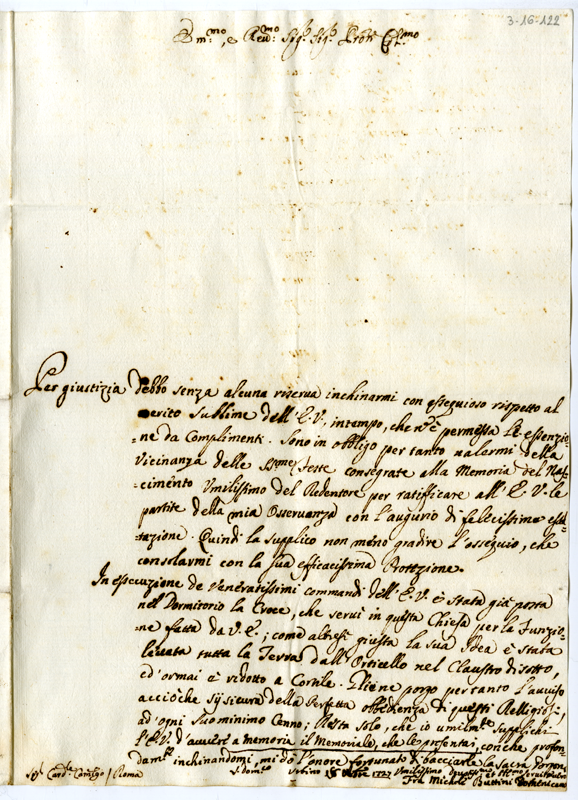 3-16-122
Em.mo, e Reu.mo Sig.r Sig.r Pron Col.mo
Per giustizia debbo senza alcuna riserua inchinarmi con esseguioso rispetto al
merito sublime dell'E.V. intempo, che n'è permessa le essenzio=
=ne da Complimenti. Sono in obbligo per tanto ualarmi della
Vicinanza delle Feste consegrate alla Memoria del Nas=
=cimento Vmilissimo del Redentore per ratifficare all'E.V. le
partite della mia Osseruanza con l'augurio di felicissime
=tazione. Quindi la supplico non meno gradire l'ossequio, che
consolarmi con la sua efficacissima Protezione.
In essecuzione de Veneratissimi commandi dell'E.V. è stata già posta
nel Dormitorio la Croce, che seruì in questa Chiesa per la Funzio=
=ne fatta da V.E.; come altresì giusta la sua Idea è stata
leuata tutta la Terra dall'Orticello nel Claustro disotto,
ed'ormai è ridotto a Cortile. Gliene porgo per tanto l'auuiso
acciòche sij sicura della Perfetta obbedienza di questi Relligiosi
ad'ogni suo minimo Cenno; Resta solo, che io umilm.te supplichi
l'E.V. d'auuere a memoria il Memoriale, che le presentai, con che profon=
dam.te inchinandomi, mi dò l'onore fortunato di bacciarle la sacra Porpora
S. Dom.co Vrbino 18 Xbre 1727 Vmilissimo
Sig.r Card.le / Roma Fra Michele Buttini Domenicano